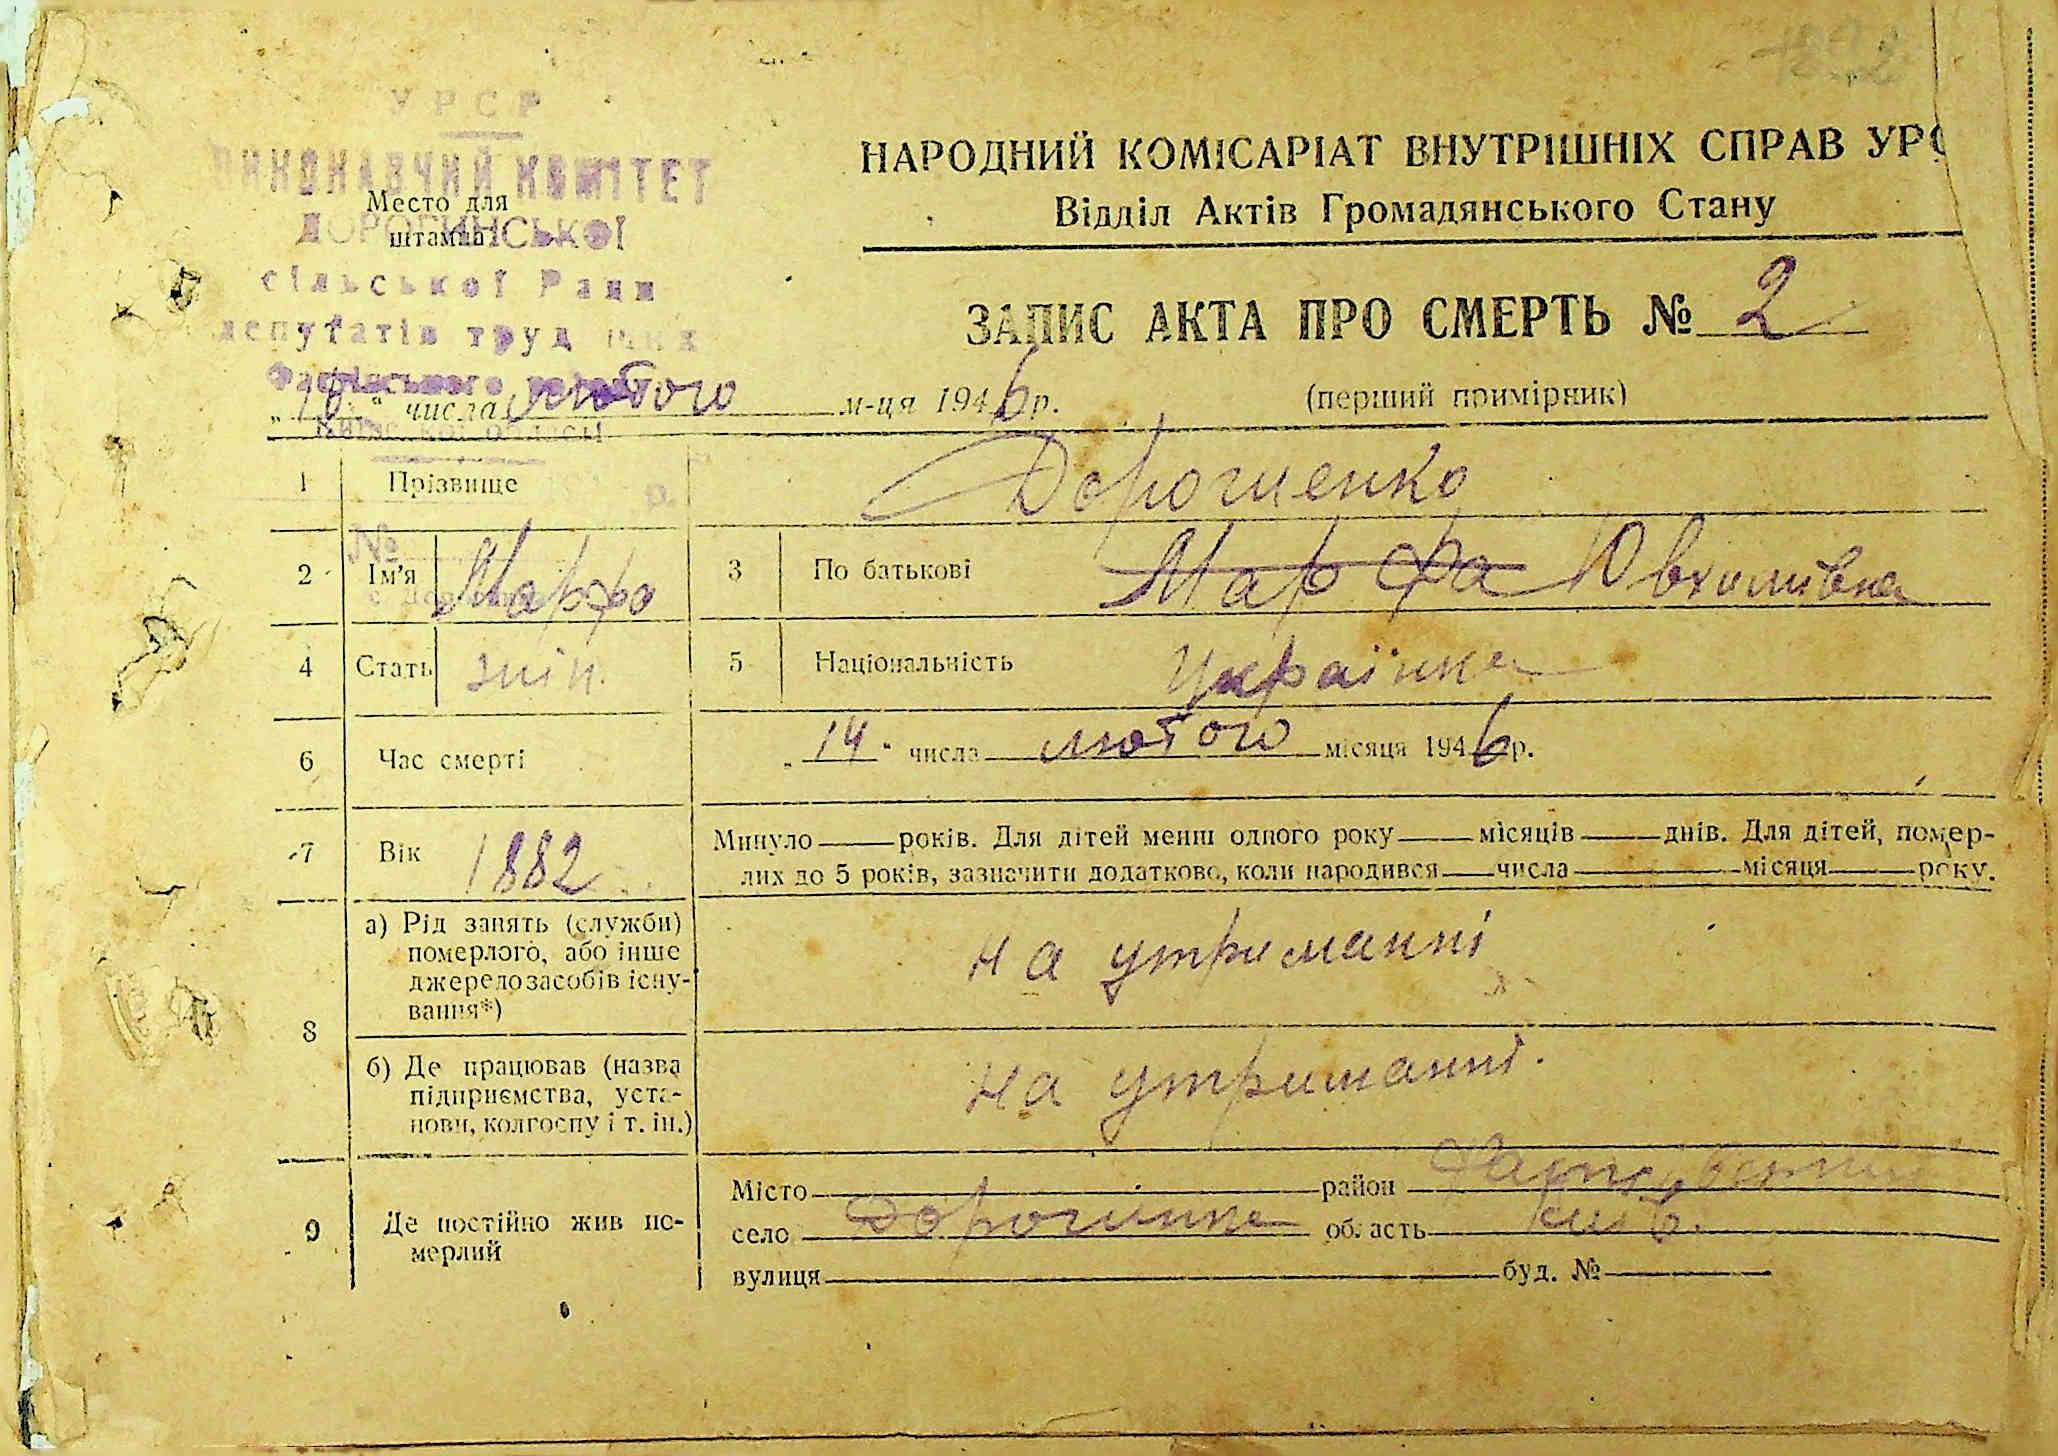 УРСР
ВИКОНАВЧИЙ КОМІТЕТ
ДОРОГИНСЬКОЇ
сільської Ради
депутатів трудящих
Київської області
Место для
штампа
НАРОДНИЙ КОМІСАРІАТ ВНУТРІШНІХ СПРАВ УРС
Відділ Актів Громадянського Стану
ЗАПИС АКТА ПРО СМЕРТЬ № 2
„16“ числа лютого м-ця 1946 р.
(перший примірник)
1 Прізвище Дорошенко
№
2 Ім'я Марфа 3 По батькові Марфа
4 Стать жін. 5 Національність Українка
6 Час смерті „14“ числа лютого місяця 1946 р.
7 Вік 1882 Минуло років. Для дітей менш одного року місяців днів. Для дітей, помер-
лих до 5 років, зазначити додатково, коли народився числа місяця року.
8 а) Рід занять (служби)
померлого, або інше
джерело засобів існу-
вання*)
на утриманні
б) Де працював (назва
підприємства, уста-
нови, колгоспу і т. ін.)
на утриманні.
9 Де постійно жив по-
мерлий
Місто район
село Дорогинка область Київ.
вулиця буд. №